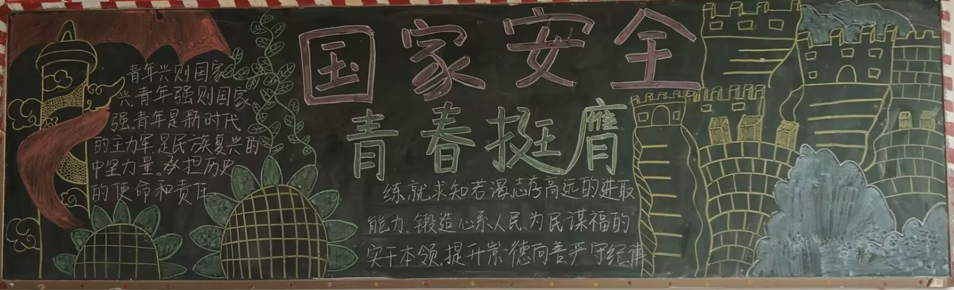 国家安全
青春挺膺
青年兴则国家
兴青年强则国家
强,青年是新时代
的主力军是民族复兴的
中坚力量,承担历史
的使命和责任
练就求知若渴志存高远的进取
能力,锻造心系人民、为民谋福的
实干本领,提升崇德向善严守纪律